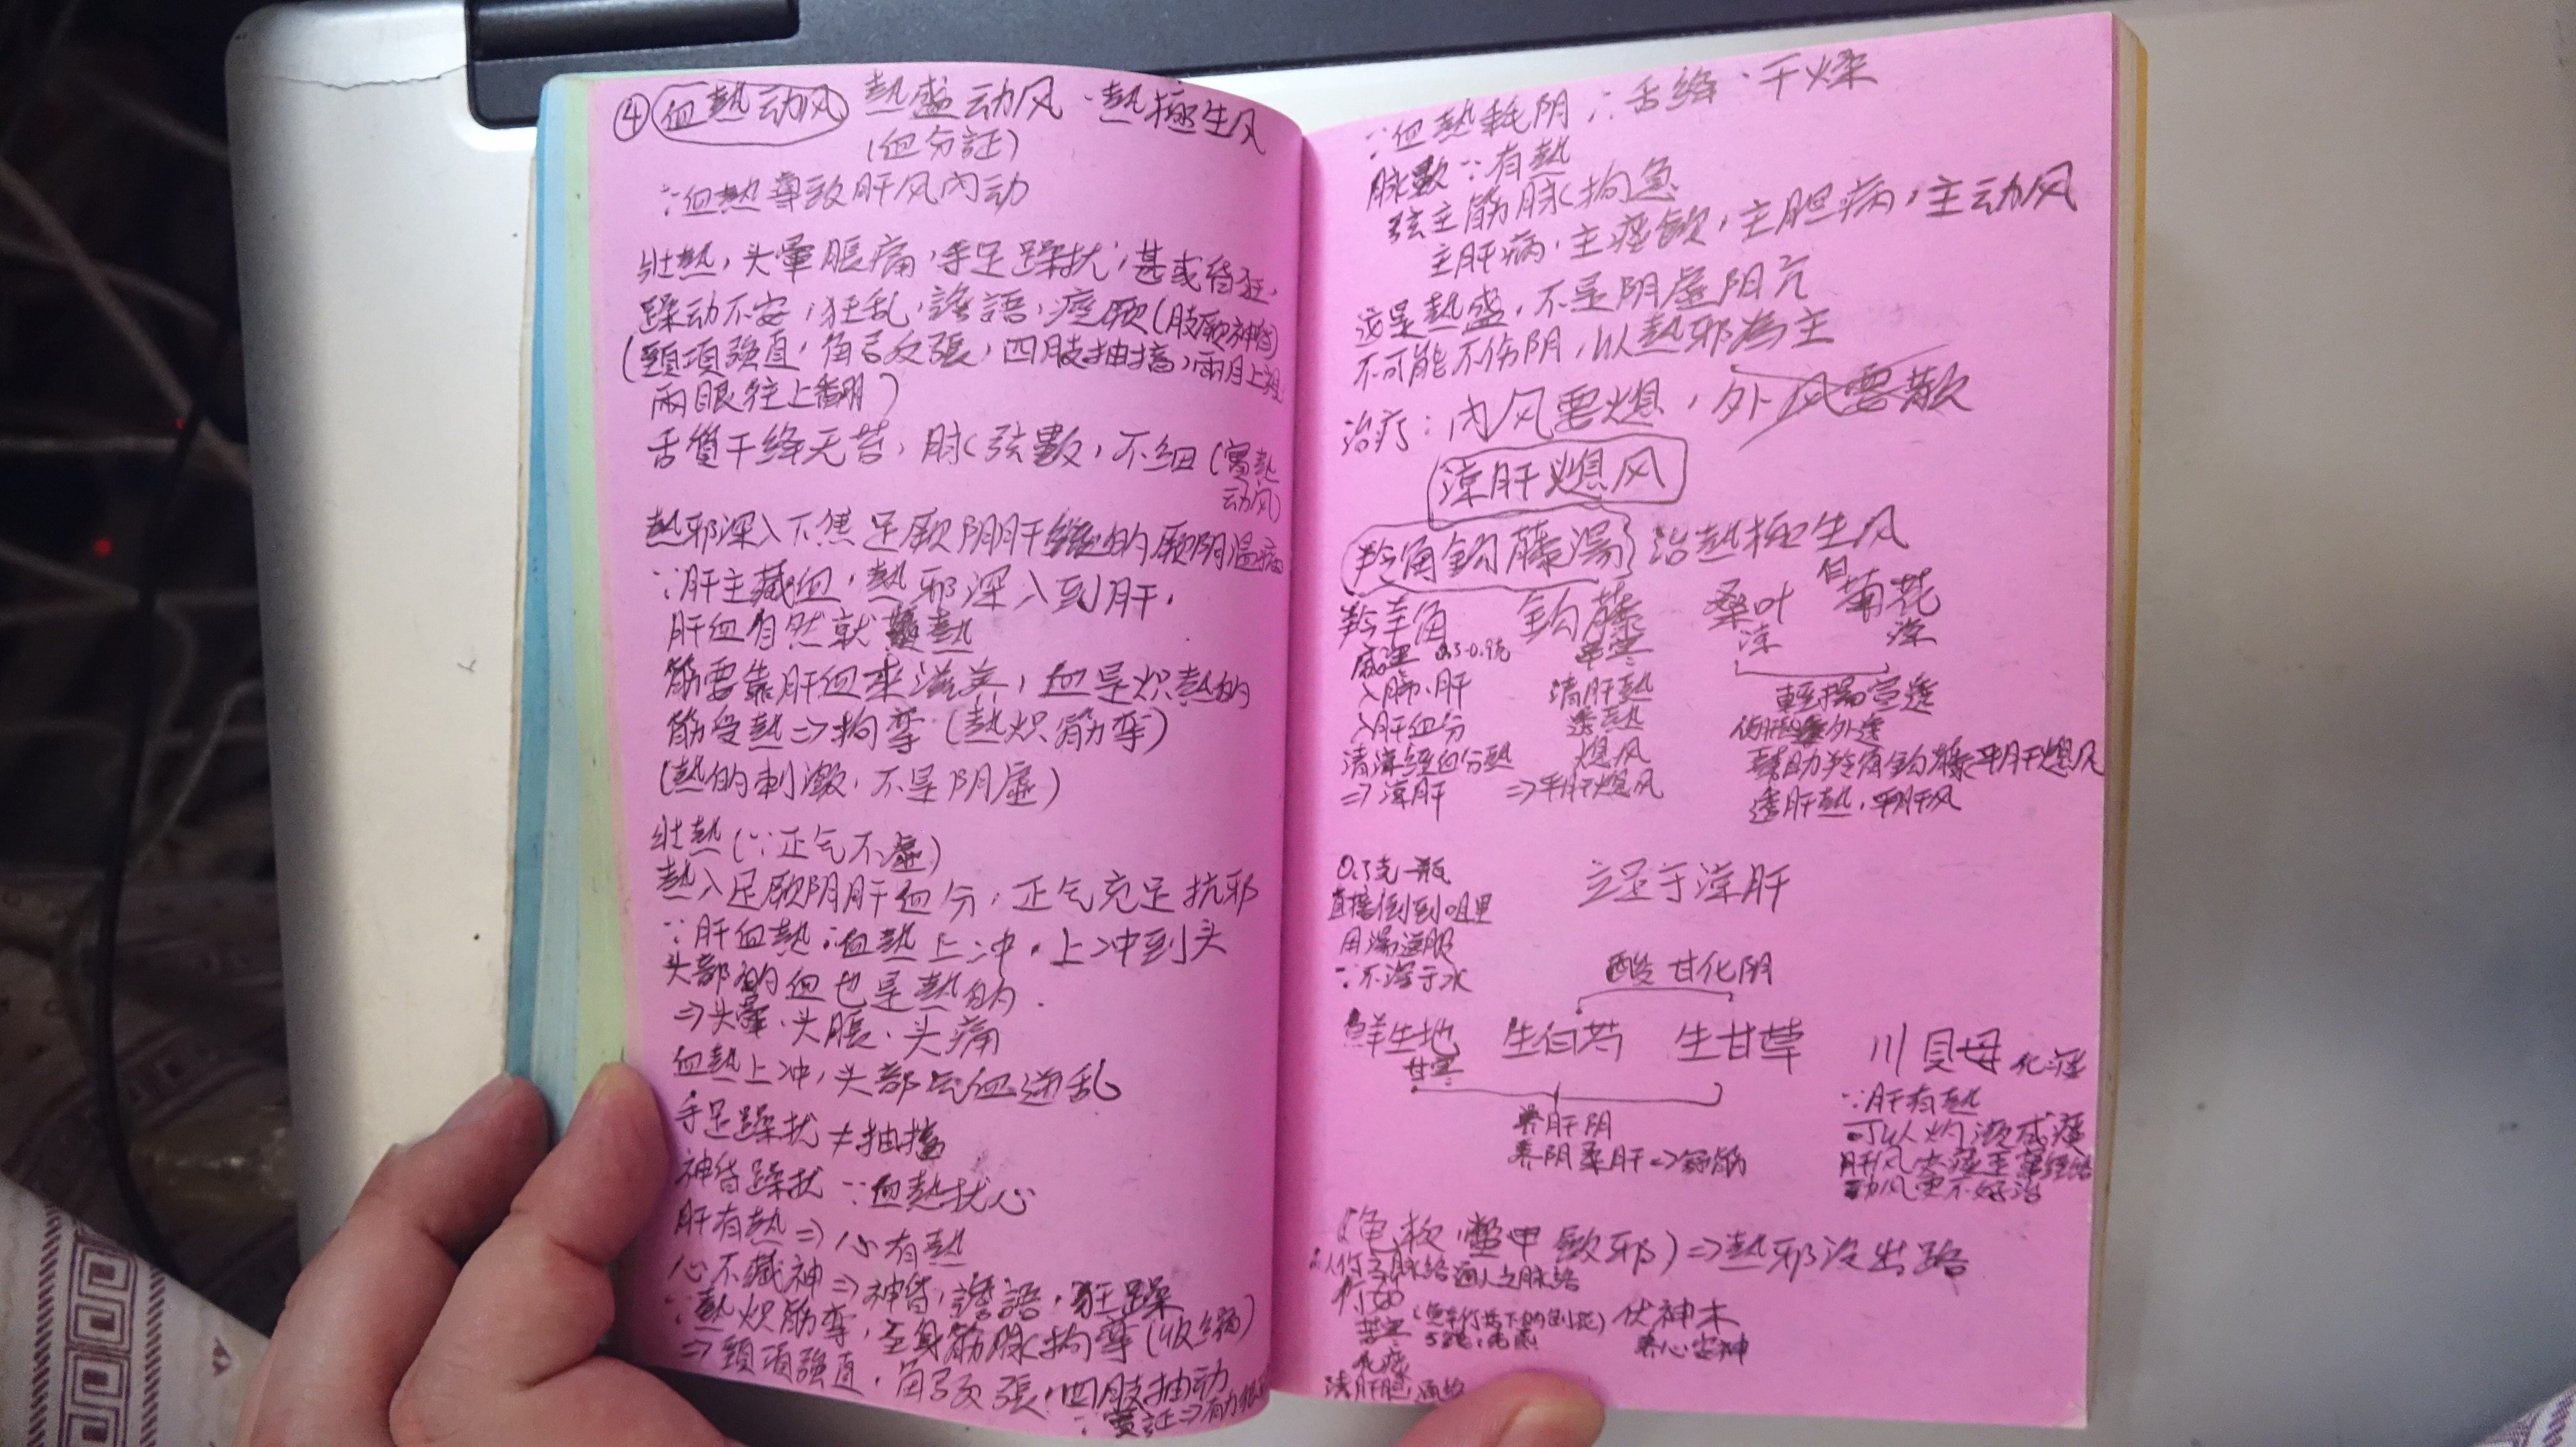 ④ 血熱动风 熱盛动风·熱極生风
(血分証)
∵血熱導致肝风內动
壮熱，头暈脹痛，手足躁扰，甚或昏狂，
躁动不安，狂乱，譫語，痙厥(肢厥神昏)
(頸項強直，角弓反張，四肢抽搐，兩目上
兩眼往上翻)
舌質干绛无苔，脉弦數，不细(實熱
动风)
熱邪深入下焦足厥阴肝經的厥阴温病
∵肝主藏血，熱邪深入到肝，
肝血自然就熱
筋要靠肝血來滋养，血是炽熱的
筋受熱⇒拘挛(熱炽筋挛)
(熱的刺激，不是阴虛)
壮熱(∵正气不虛)
熱入足厥阴肝血分，正气充足抗邪
∵肝血熱∴血熱上冲，上冲到头
头部的血也是熱的．
⇒头暈、头脹、头痛
血熱上冲，头部气血逆乱
手足躁扰≠抽搐
神昏躁扰 ∵血熱扰心
肝有熱⇒心有熱
心不藏神⇒神昏，譫語，狂躁
∵熱炽筋挛，全身筋脉拘挛(收縮)
⇒頸項強直，角弓反張，四肢抽动
∵實証⇒有力
∵血熱耗阴∴舌绛、干燥
脉數∵有熱
弦主筋脉拘急
主肝病，主痰飲，主胆病，主动风
这是熱盛，不是阴虛阳亢
不可能不伤阴，以熱邪為主
治疗：内风要熄，外风要散
涼肝熄风
羚角鈎藤湯 治熱極生风
羚羊角 鈎藤 桑叶 白菊花
咸寒 0.3-0.9克 甘寒 涼 涼
入肺、肝 清肝熱 輕揚宣透
入肝血分 透熱 外透
清 經血分熱 熄风 幫助羚角鈎藤平肝熄风
⇒涼肝 ⇒平肝熄风 透肝熱，平肝风
0.3克一瓶 立足于涼肝
直接倒到咀里
用湯送服
∵不溶于水 酸甘化阴
鮮生地 生白芍 生甘草 川貝母 化痰
甘寒 ∵肝有熱
养肝阴 可以灼液成痰
养阴柔肝⇒舒筋 肝风夹痰
动风更不好治
(龟板，鱉甲斂邪)⇒熱邪沒出路
以竹之脉絡通人之脉絡
竹茹 茯神木
苦寒 养心安神
化痰
清肝胆，通絡